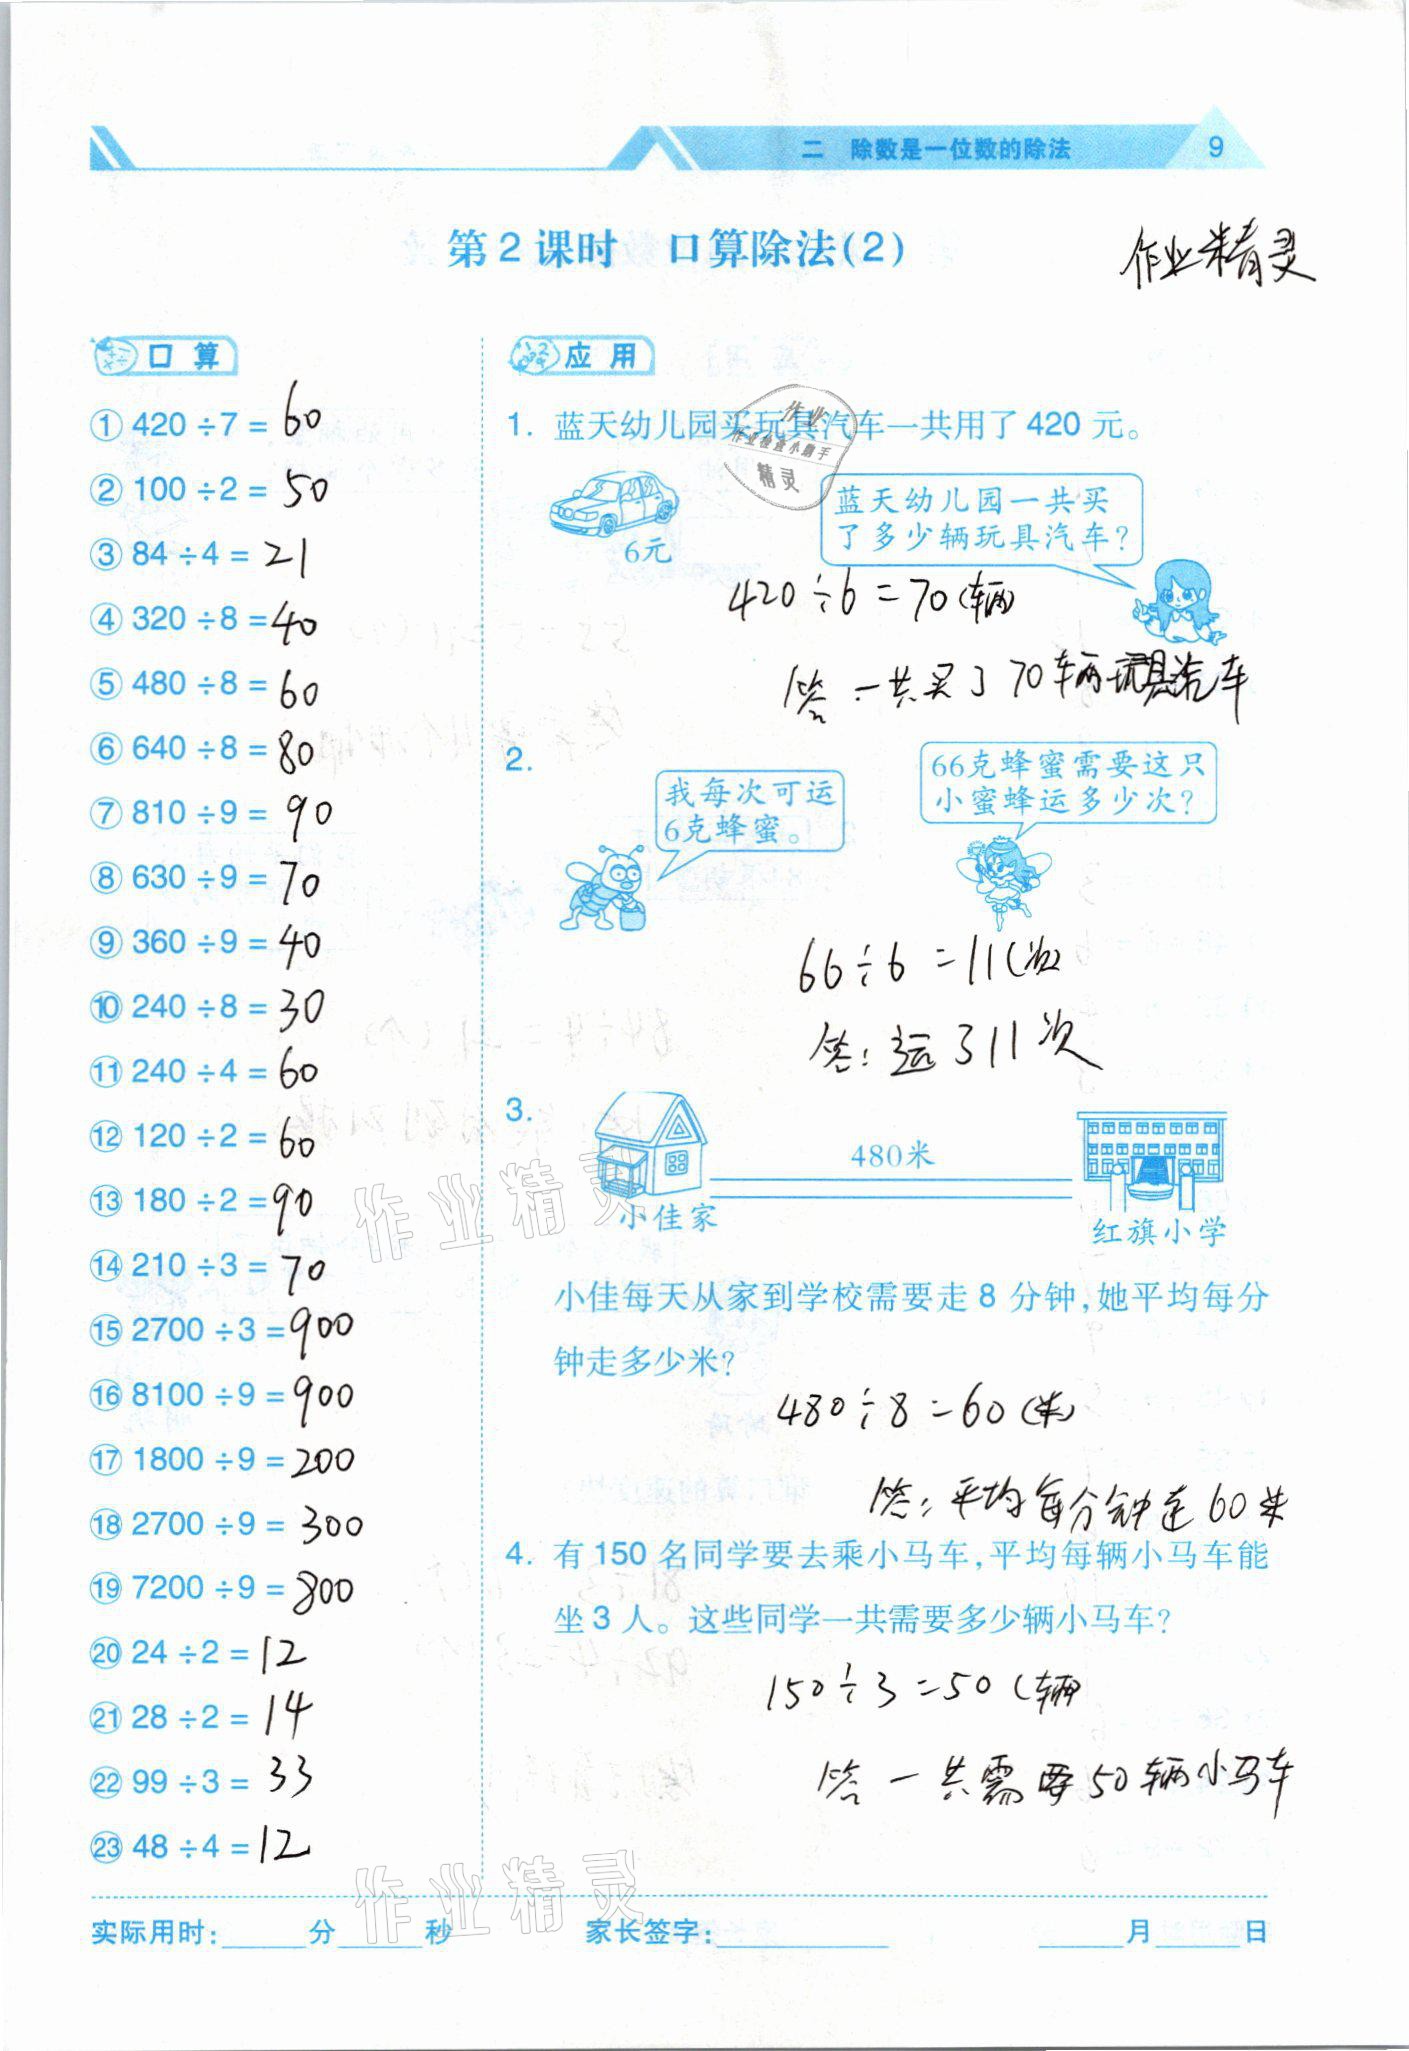 二 除数是一位数的除法 9
第2课时 口算除法(2)
作业精灵
口算
① 420÷7=60
② 100÷2=50
③ 84÷4=21
④ 320÷8=40
⑤ 480÷8=60
⑥ 640÷8=80
⑦ 810÷9=90
⑧ 630÷9=70
⑨ 360÷9=40
⑩ 240÷8=30
⑪ 240÷4=60
⑫ 120÷2=60
⑬ 180÷2=90
⑭ 210÷3=70
⑮ 2700÷3=900
⑯ 8100÷9=900
⑰ 1800÷9=200
⑱ 2700÷9=300
⑲ 7200÷9=800
⑳ 24÷2=12
㉑ 28÷2=14
㉒ 99÷3=33
㉓ 48÷4=12
应用
1. 蓝天幼儿园买玩具汽车一共用了420元。
作业
作业检查小助手
精灵
6元
蓝天幼儿园一共买
了多少辆玩具汽车?
420÷6=70(辆)
答一共买了70辆玩具汽车
2.
我每次可运
6克蜂蜜。
66克蜂蜜需要这只
小蜜蜂运多少次?
66÷6=11(次)
答:运了11次
3.
480米
小佳家
红旗小学
小佳每天从家到学校需要走8分钟,她平均每分
钟走多少米?
480÷8=60(米)
答:平均每分钟走60米
4. 有150名同学要去乘小马车,平均每辆小马车能
坐3人。这些同学一共需要多少辆小马车?
150÷3=50(辆)
答一共需要50辆小马车
作业精灵
作业精灵
实际用时:______分______秒
家长签字:____________
______月______日